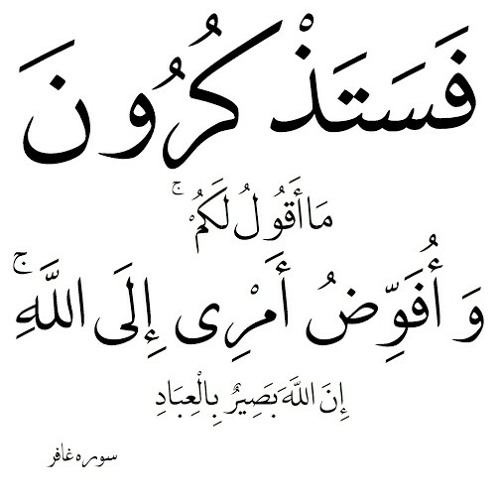 فَسَتَذْكُرُونَ
مَا أَقُولُ لَكُمْ ۚ
وَ أُفَوِّضُ أَمْرِی إِلَى اللَّهِ ۚ
إِنَ اللَّهَ بَصِيرٌ بِالْعِبَادِ
سوره غافر